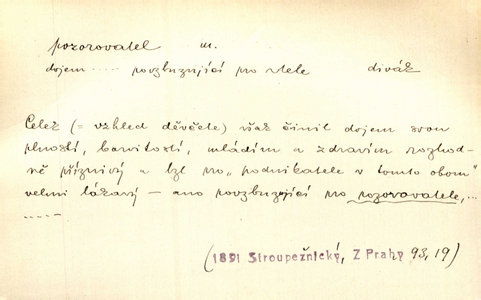 pozorovatel m.
dojem ..... povzbuzující pro -tele divák
Celek (= vzhled děvčete) však činil dojem svou
plností, barvitostí, mládím a zdravím rozhod-
ně příznivý a byl pro „podnikatele v tomto oboru"
velmi lákavý — ano povzbuzující pro pozorovatele,...
.....
(1891 Stroupežnický, Z Prahy 93,19)